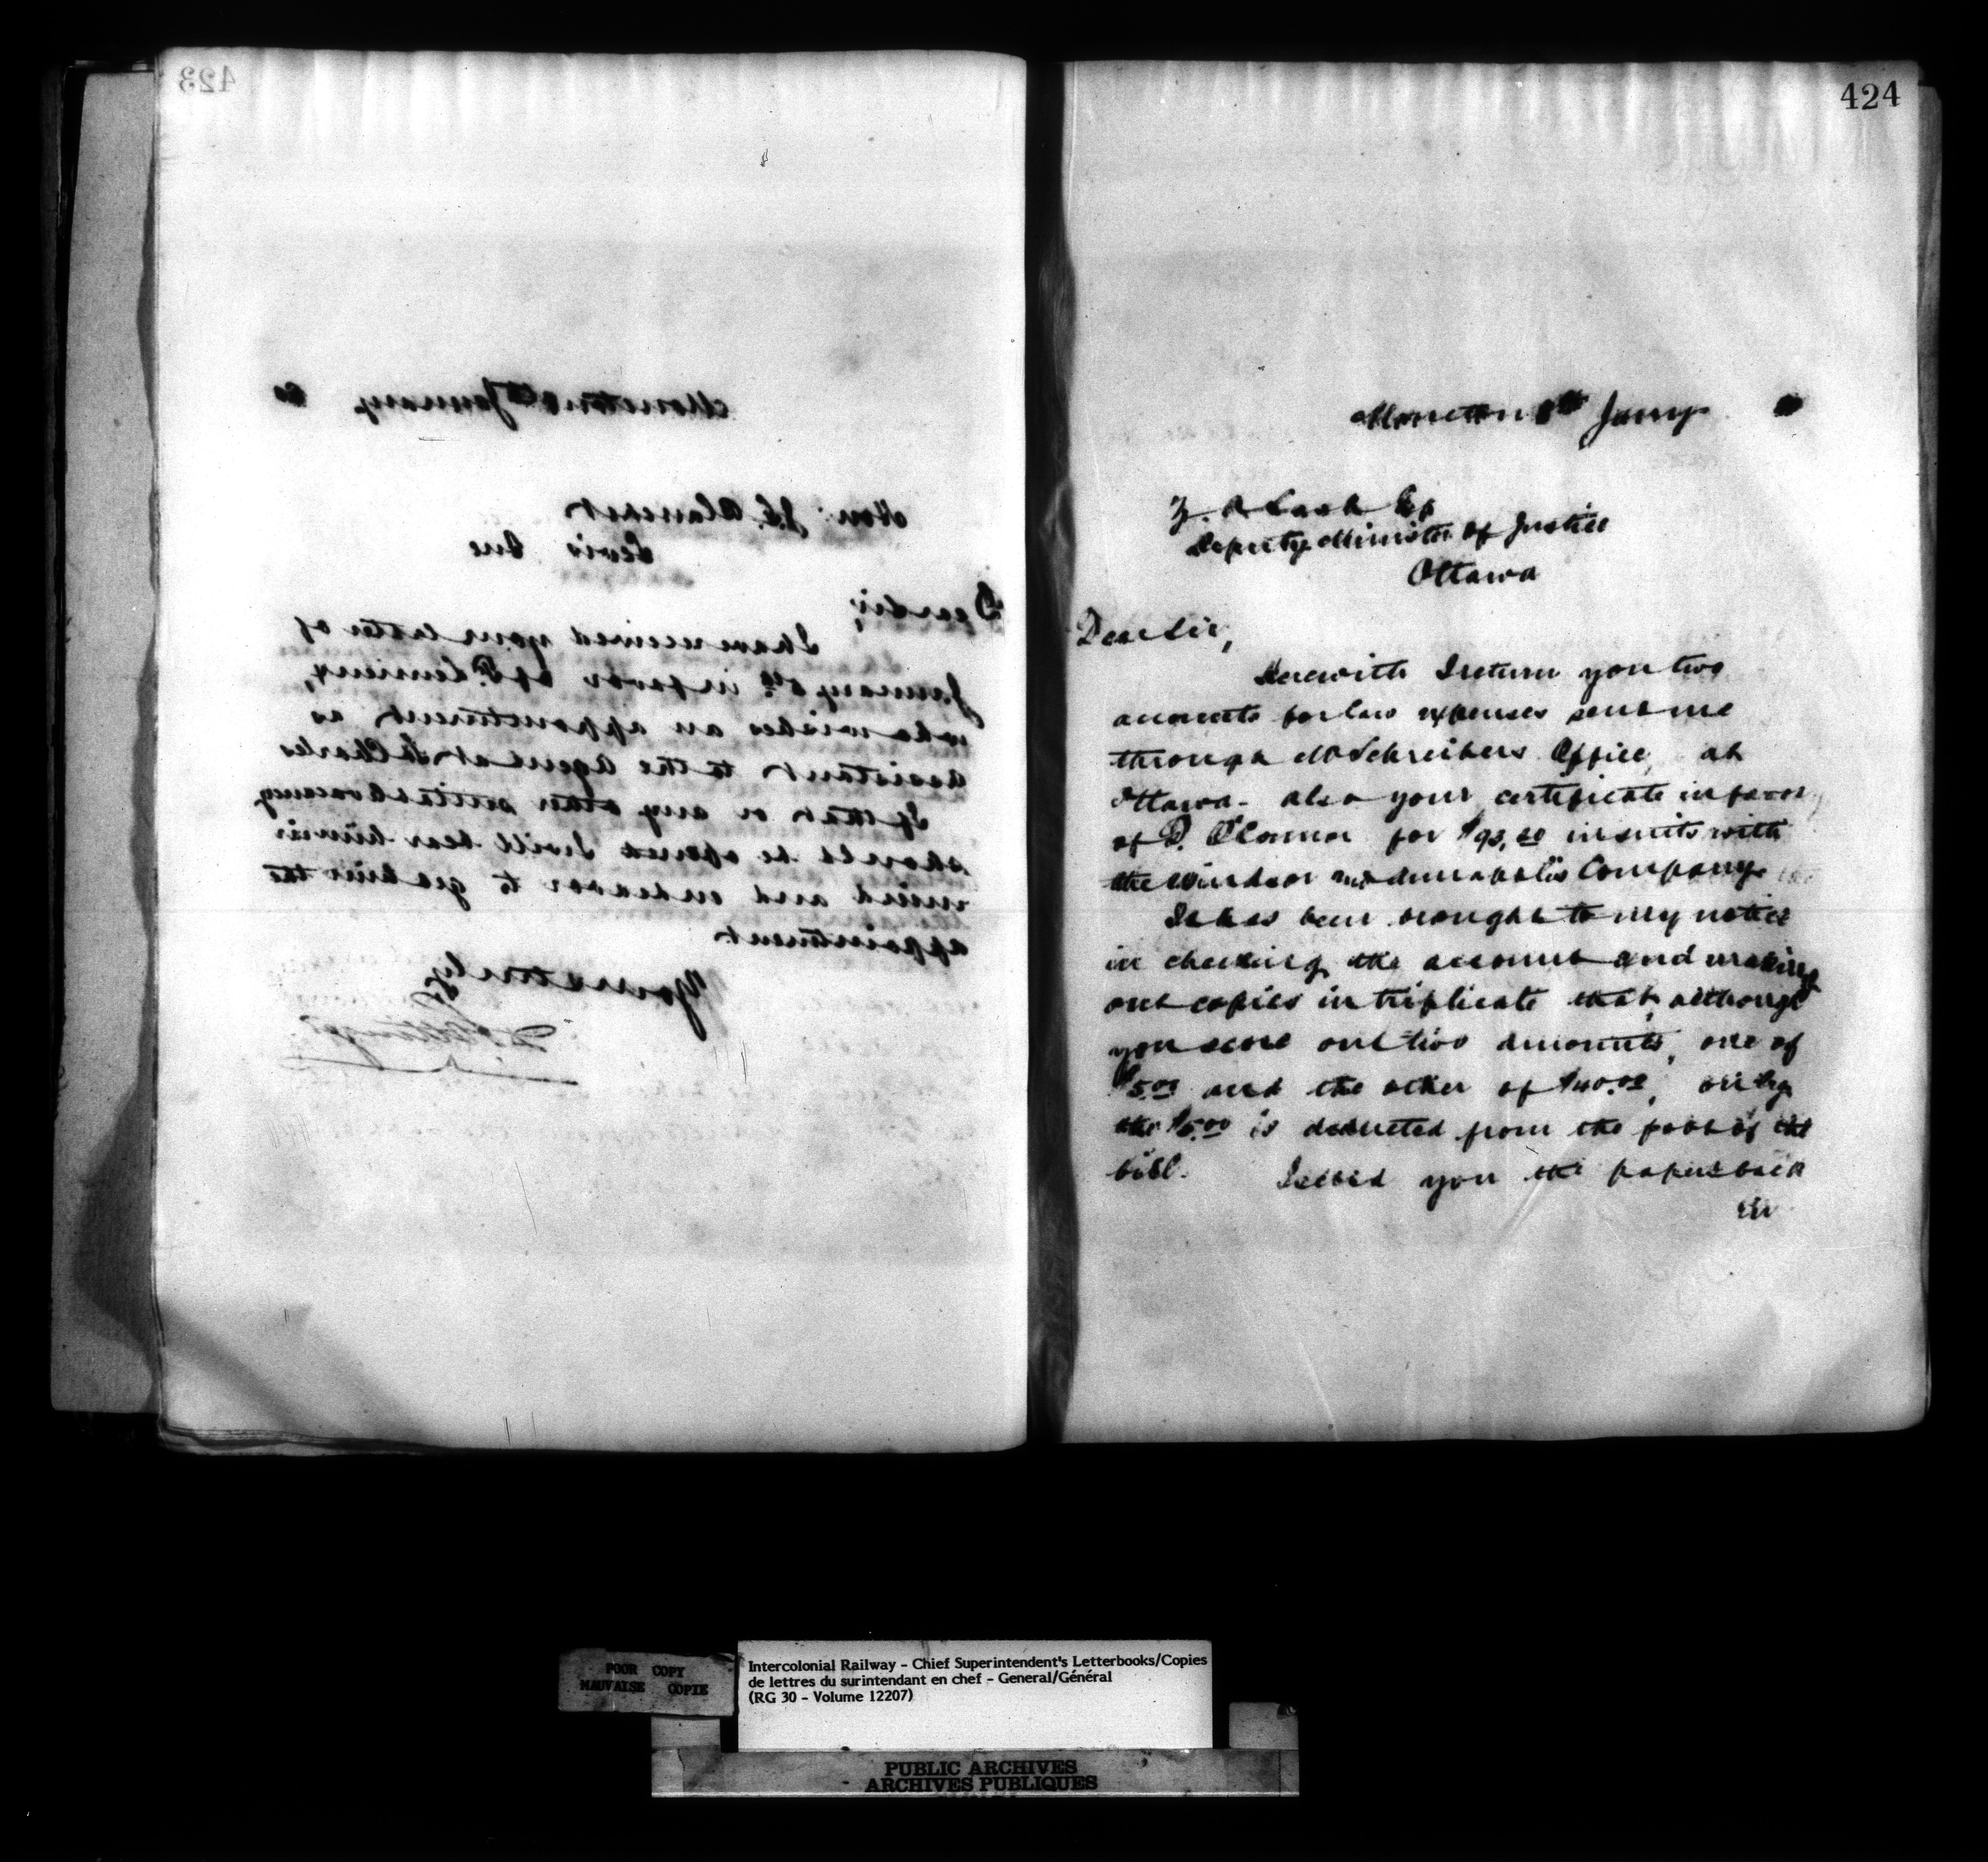 423
Moncton January 80
Hon: J. G. Blanchet
Levis Que
Dear Sir,
I have received your letter of
January 6th in favor of P. Lemieux,
who wishes an appointment as
assistant to the Agent at St Charles
If that or any other suitable vacancy
should be opened I will bear him in
mind and endeavor to get him the
appointment
Yours truly
D. Pottinger
424
Moncton 8th Jany
Z. A Lash Esq
Deputy Minister of Justice
Ottawa
Dear Sir,
Herewith I return you two
accounts for law expenses sent me
through Mr Schreibers Office, at
Ottawa - also your certificate in favor
of D. O'Connor for $93.60 in suits with
the Windsor and Annapolis Company.
It has been brought to my notice
in checking the account and making
out copies in triplicate that, although
you score out two amounts, one of
$5.00 and the other of $40.00, only
the $5.00 is deducted from the foot of the
bill. I send you the papers back
in
POOR COPY
MAUVAISE COPIE
Intercolonial Railway - Chief Superintendent's Letterbooks/Copies
de lettres du surintendant en chef - General/Général
(RG 30 - Volume 12207)
PUBLIC ARCHIVES
ARCHIVES PUBLIQUES